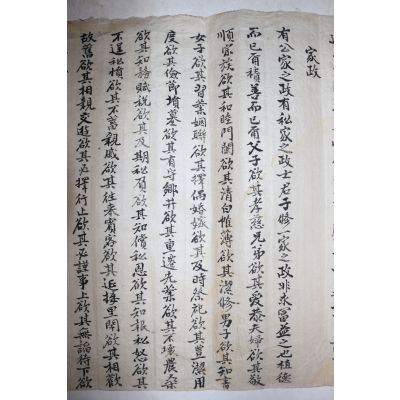 家政
有公家之政有私家之政士君子修一家之政非求富益之也植德
而已爾積善而已爾父子欲其孝慈兄弟欲其愛恭夫婦欲其敬
順家族欲其和睦門閫欲其清白帷薄欲其潔修男子欲其知書
女子欲其習業姻聯欲其擇偶婚嫁欲其及時祭祀欲其豐潔用
度欲其儉節墳墓欲其有守鄉井欲其重遷先業欲其不壞農桑
欲其知務賦稅欲其及期私負欲其知償私恩欲其知報私怒欲其
不逞私憤欲其不蓄親戚欲其往來賓客欲其延接里閈欲其相歡
故舊欲其相親交遊欲其必擇行止欲其必謹事上欲其無諂待下欲